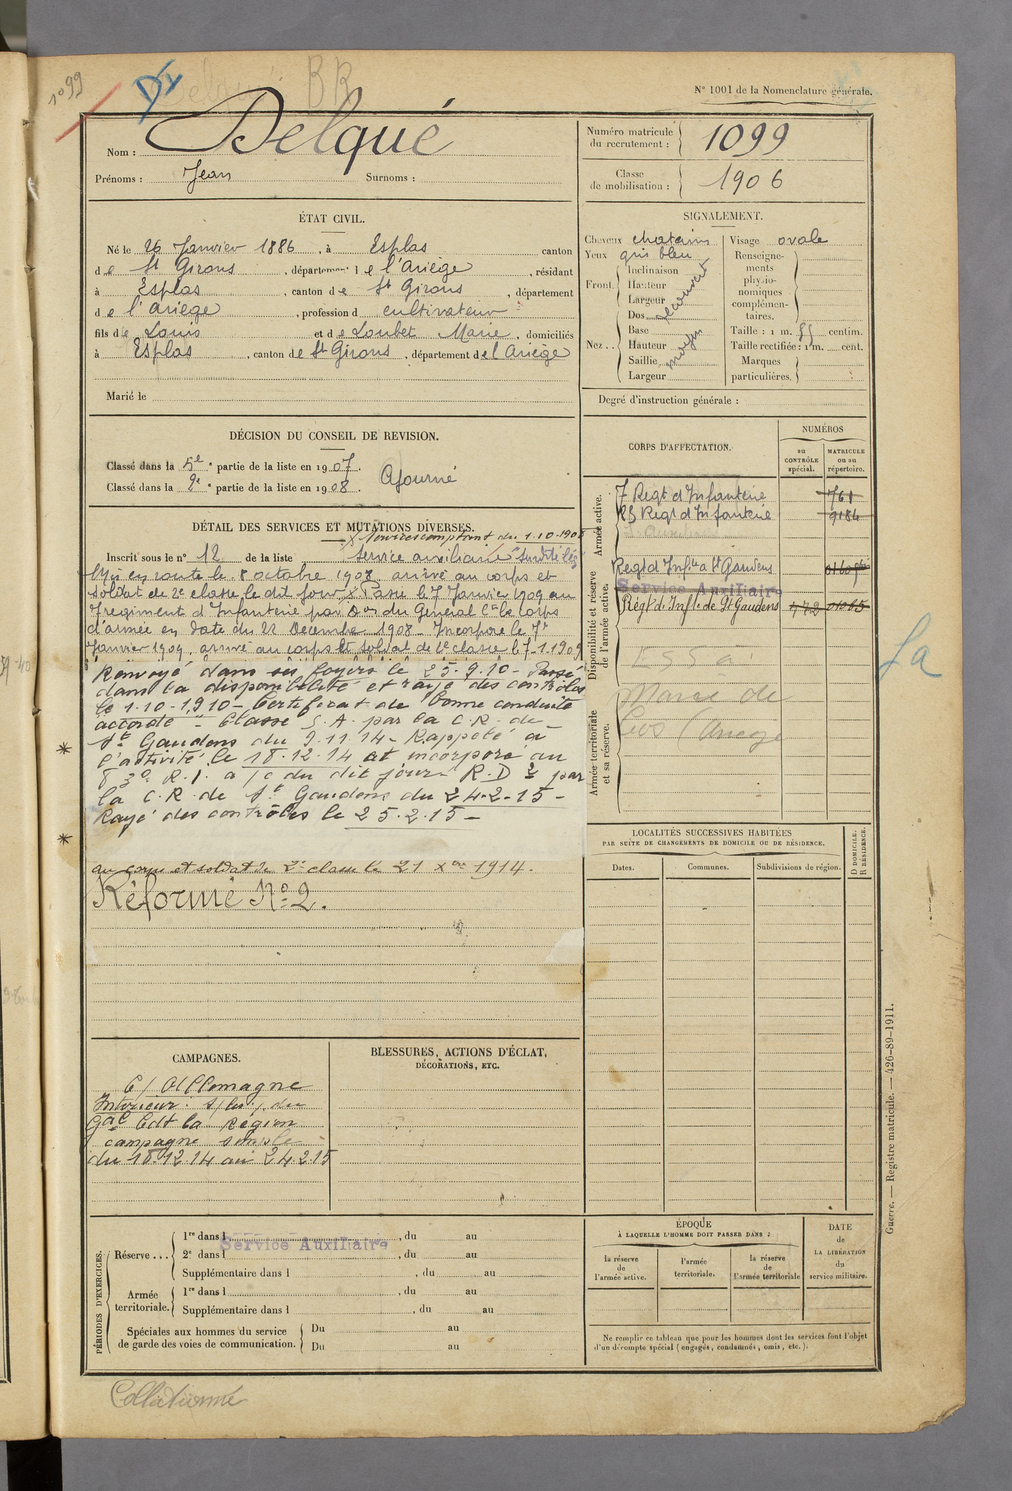 1099
Dy
BR
N° 1001 de la Nomenclature générale.
Nom : Delqué
Prénoms : Jean Surnoms :
Numéro matricule du recrutement : 1099
Classe de mobilisation : 1906
ÉTAT CIVIL.
Né le 26 Janvier 1886, à Esplas canton
de St Girons, département de l'Ariège, résidant
à Esplas, canton de St Girons, département
de l'Ariège, profession de cultivateur
fils de Louis et de Loubet Marie, domiciliés
à Esplas, canton de St Girons, département de l'Ariège
Marié le
SIGNALEMENT.
Cheveux chatains
Yeux gris bleu
Front.
Inclinaison
Hauteur
Largeur
découvert
Nez..
Dos
Base
Hauteur
Saillie
Largeur
moyen
Visage ovale
Renseignements physionomiques complémentaires.
Taille : 1 m. 55 centim.
Taille rectifiée : 1 m. cent.
Marques particulières.
Degré d'instruction générale :
DÉCISION DU CONSEIL DE REVISION.
Classé dans la 5e partie de la liste en 1907.
Classé dans la 2e partie de la liste en 1908.
Ajourné
CORPS D'AFFECTATION.
NUMÉROS
au CONTRÔLE spécial.
MATRICULE ou au répertoire.
Armée active.
7 Regt d'Infanterie 761
83 Regt d'Infanterie 9186
Disponibilité et réserve de l'armée active.
Regt d'Infie à St Gaudens
Service Auxiliaire
Régt d'Infie de St Gaudens 472 01265
Armée territoriale et sa réserve.
Mairie de
(Ariège
DÉTAIL DES SERVICES ET MUTATIONS DIVERSES.
X Services comptant du 1-10-1908
Inscrit sous le n° 12 de la liste Service auxiliaire
Mis en route le 8 octobre 1908, arrivé au corps et
soldat de 2e classe, le dit jour. X Passé le 7 Janvier 1909 au
7 regiment d'Infanterie par Don du General Ct le Corps
d'armée en date du 22 Decembre 1908. Incorporé le 7
Janvier 1909, arrivé au corps et soldat de 2e classe le 7-1-1909
Renvoyé dans ses foyers le 25.9.10 - Passé
dans la disponibilité et rayé des contrôles
le 1-10-1910 - Certificat de bonne conduite
accordé - Classé S.A. par la C.R. de
St Gaudens du 9.11.14 - Rappelé à
l'activité le 18.12.14 et incorporé au
83e R.I. à /c du dit jour - R.D 2 par
la C.R. de St Gaudens du 24-2-15 -
Rayé des contrôles le 25.2.15 -
au corps et soldat de 2e classe le 21 Xbre 1914.
Réformé N° 2.
La
LOCALITÉS SUCCESSIVES HABITÉES
PAR SUITE DE CHANGEMENTS DE DOMICILE OU DE RÉSIDENCE.
Dates.
Communes.
Subdivisions de région.
D DOMICILE.
R RÉSIDENCE.
CAMPAGNES.
C/ Allemagne
Intérieur : du
Gal Cdt la Région
campagne simple
du 18.12.14 au 24.2.15
BLESSURES, ACTIONS D'ÉCLAT,
DÉCORATIONS, ETC.
PÉRIODES D'EXERCICES.
Réserve...
1re dans l , du au
2e dans l , du au
Service Auxiliaire
Supplémentaire dans l , du au
Armée territoriale.
1re dans l , du au
Supplémentaire dans l , du au
Spéciales aux hommes du service de garde des voies de communication.
Du au
Du au
ÉPOQUE
À LAQUELLE L'HOMME DOIT PASSER DANS :
la réserve de l'armée active.
l'armée territoriale.
la réserve de l'armée territoriale
DATE
de
LA LIBÉRATION
du
service militaire.
Ne remplir ce tableau que pour les hommes dont les services font l'objet
d'un décompte spécial (engagés, condamnés, omis, etc.).
Guerre. — Registre matricule. — 426-89-1911.
Collationné